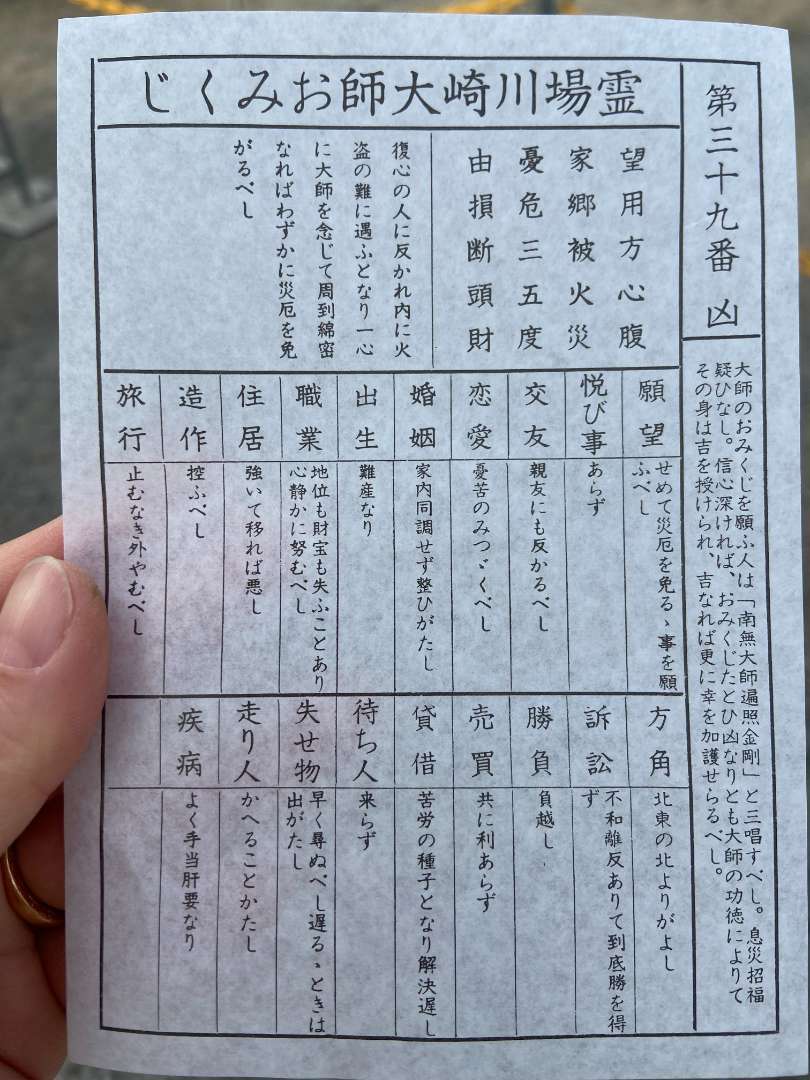 霊場川崎大師おみくじ
第三十九番 凶
大師のおみくじを願ふ人は「南無大師遍照金剛」と三唱すべし。息災招福
疑ひなし。信心深ければ、おみくじたとひ凶なりとも大師の功徳によりて
その身は吉を授けられ、吉なれば更に幸を加護せらるべし。
望用方心腹
家郷被火災
憂危三五度
由損断頭財
復心の人に反かれ内に火
盗の難に遇ふとなり一心
に大師を念じて周到綿密
なればわずかに災厄を免
がるべし
願望
せめて災厄を免るゝ事を願
ふべし
悦び事
あらず
交友
親友にも反かるべし
恋愛
憂苦のみつゞくべし
婚姻
家内同調せず整ひがたし
出生
難産なり
職業
地位も財宝も失ふことあり
心静かに努むべし
住居
強いて移れば悪し
造作
控ふべし
旅行
止むなき外やむべし
方角
北東の北よりがよし
訴訟
不和離反ありて到底勝を得
ず
勝負
負越し
売買
共に利あらず
貸借
苦労の種子となり解決遅し
待ち人
来らず
失せ物
早く尋ぬべし遅るゝときは
出がたし
走り人
かへることかたし
疾病
よく手当肝要なり